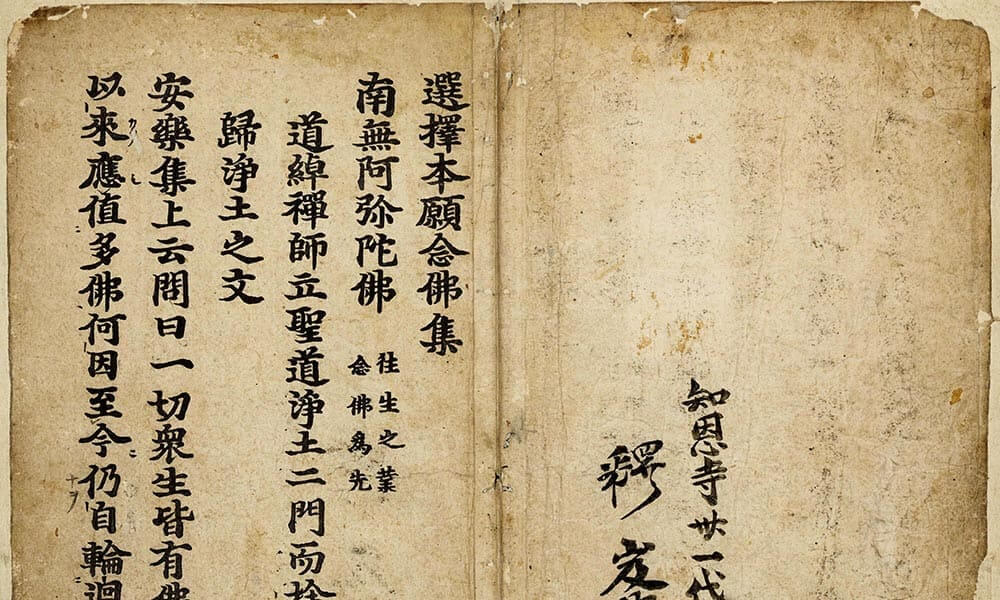 知恩寺卅一代
釋岌
選擇本願念佛集
南無阿弥陀佛 往生之業
念佛爲先
道綽禪師立聖道淨土二門而捨
歸淨土之文
安樂集上云問曰一切衆生皆有佛
以來應值多佛何因至今仍自輪迴